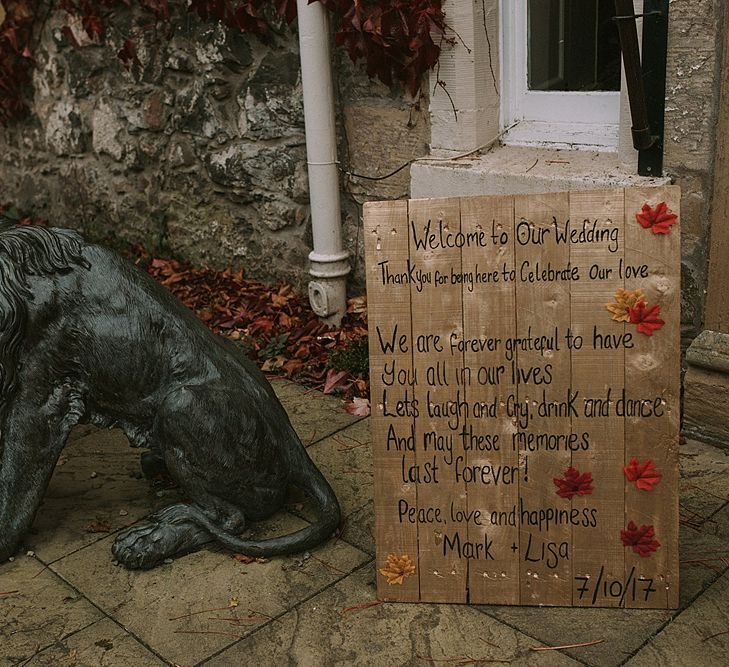 Welcome to Our Wedding
Thank you for being here to Celebrate Our love
We are forever grateful to have
You all in our lives
Lets laugh and Cry, drink and dance
And may these memories
last forever!
Peace, love and happiness
Mark + Lisa
7/10/17